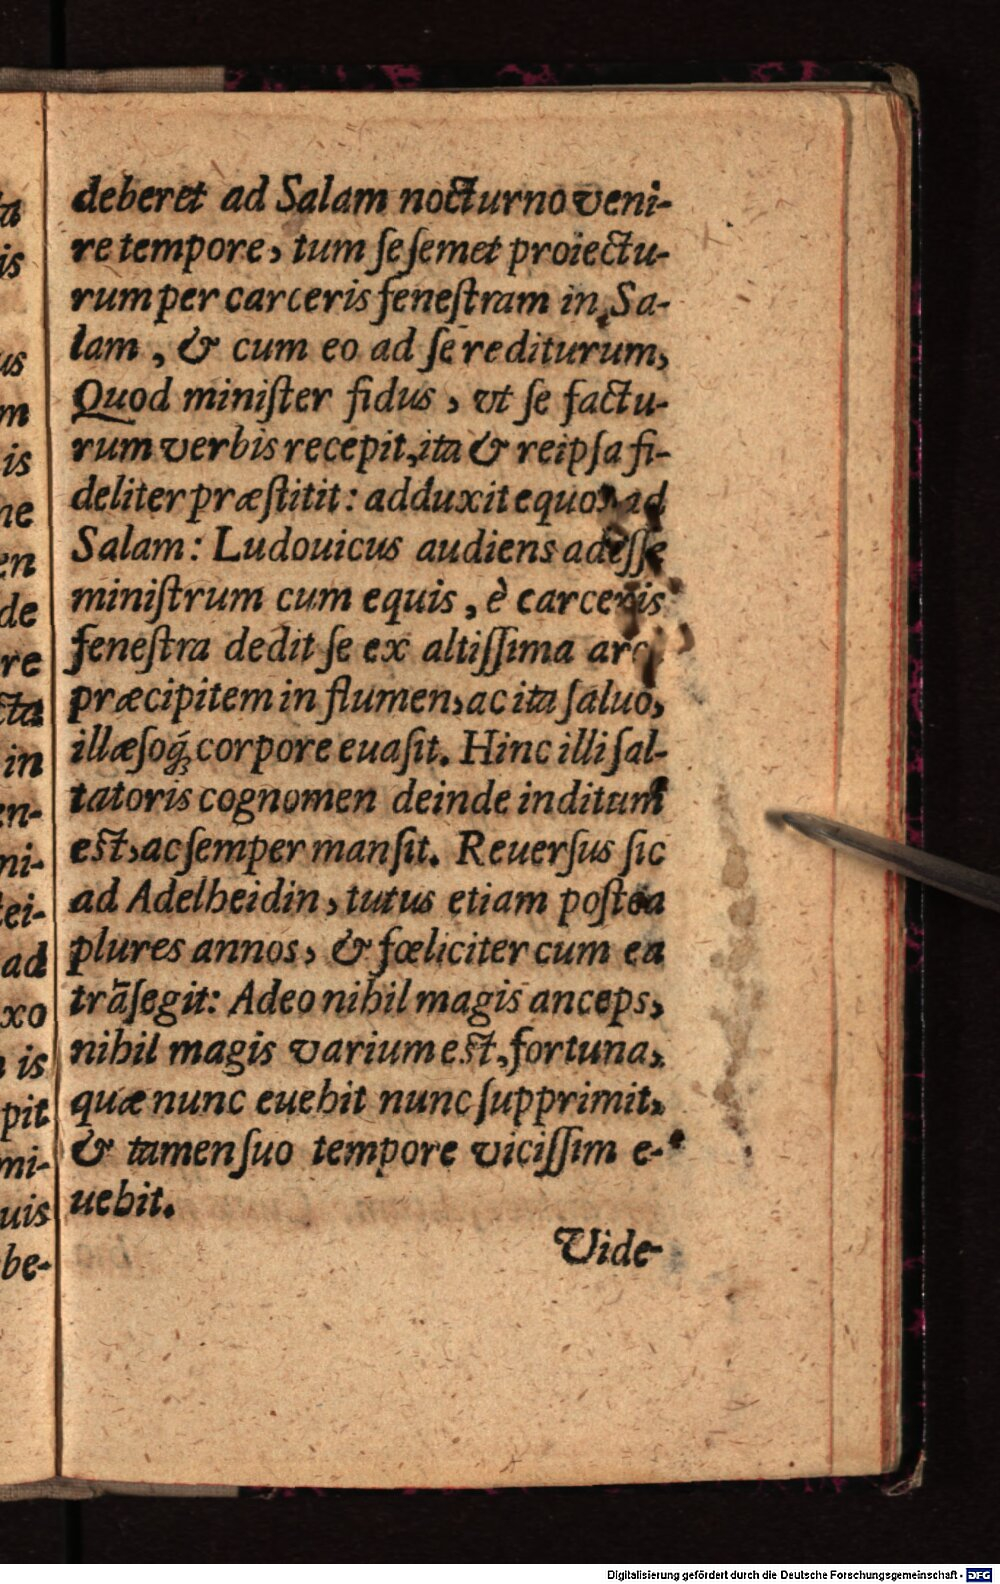 deberet ad Salam nocturno veni-
re tempore, tum sesemet proiectu-
rum per carceris fenestram in Sa-
lam, & cum eo ad se rediturum,
Quod minister fidus, vt se factu-
rum verbis recepit, ita & reipsa fi-
deliter præstitit: adduxit equos ad
Salam: Ludouicus audiens adesse
ministrum cum equis, è carceris
fenestra dedit se ex altissima
præcipitem in flumen, ac ita saluo,
illæsoq́ꝫ corpore euasit. Hinc illi sal-
tatoris cognomen deinde inditum
est, ac semper mansit. Reuersus sic
ad Adelheidin, tutus etiam postea
plures annos, & fœliciter cum ea
trãsegit: Adeo nihil magis anceps,
nihil magis varium est, fortuna,
quæ nunc euehit nunc supprimit,
& tamen suo tempore vicissim e-
uehit.
Vide-
Digitalisierung gefördert durch die Deutsche Forschungsgemeinschaft - DFG